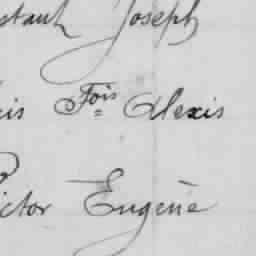 stant Joseph
is Fois Alexis
ictor Eugène